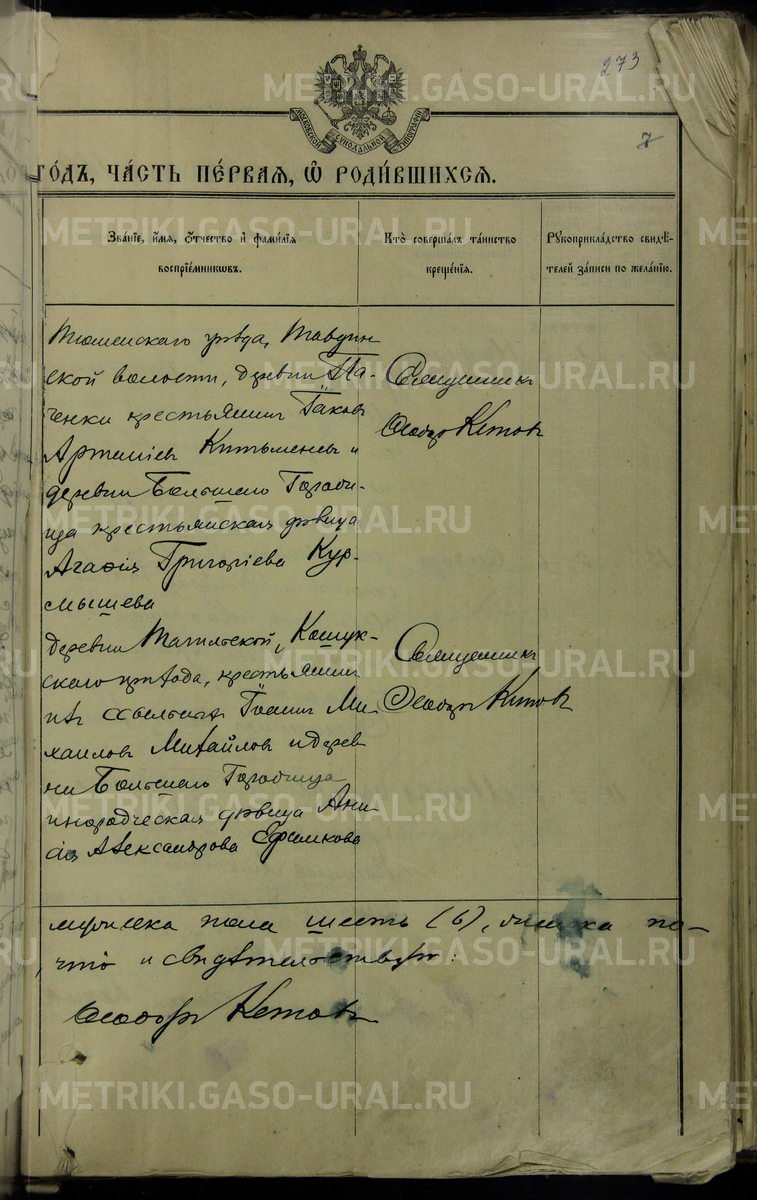 273
7
МОСКОВСКОЙ СѴНОДАЛЬНОЙ ТИПОГРАФІИ
го́дъ, ча́сть пе́рвая, ѡ҆ роди́вшихся.
Зва́нїе, и҆́мя, ѻ҆́тчество и҆ фами́лїѧ воспрїе́мникѡвъ.
Кто̀ соверша́лъ та́инство креще́нїѧ.
Рꙋкоприкла́дство свидѣ́телей за́писи по жела́нїю.
Тюменскаго уѣзда, Тавдин
ской волости, деревни Па-
ченки крестьянинъ Іаковъ
и
деревни Большаго Городи-
ща крестьянская дѣвица
Агафія Григоріева Кур-
мышева
Священникъ
Ѳеодоръ Кетовъ
деревни Тагильской, Кошук-
скаго прихода, крестьянинъ
Іоаннъ Ми-
хаиловъ Михайловъ и дерев
ни Большаго Городища
инородческая дѣвица Ани-
сія Александрова
Священникъ
Ѳеодоръ Кетовъ
пола шесть (6),
что и свидѣтельствую:
Ѳеодоръ Кетовъ
METRIKI.GASO-URAL.RU